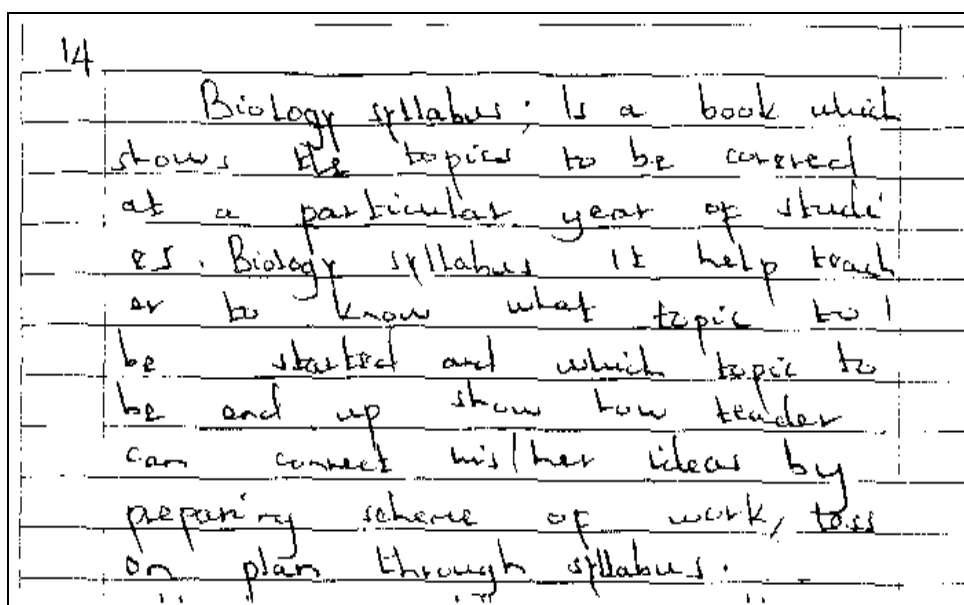 14
Biology syllabus; Is a book which
shows the topics to be covered
at a particular year of studi
es. Biology syllabus it help teach
er to know what topic to
be started and which topic to
be end up show how teacher
can connect his/her ideas by
preparing scheme of work, less
on plan through syllabus.